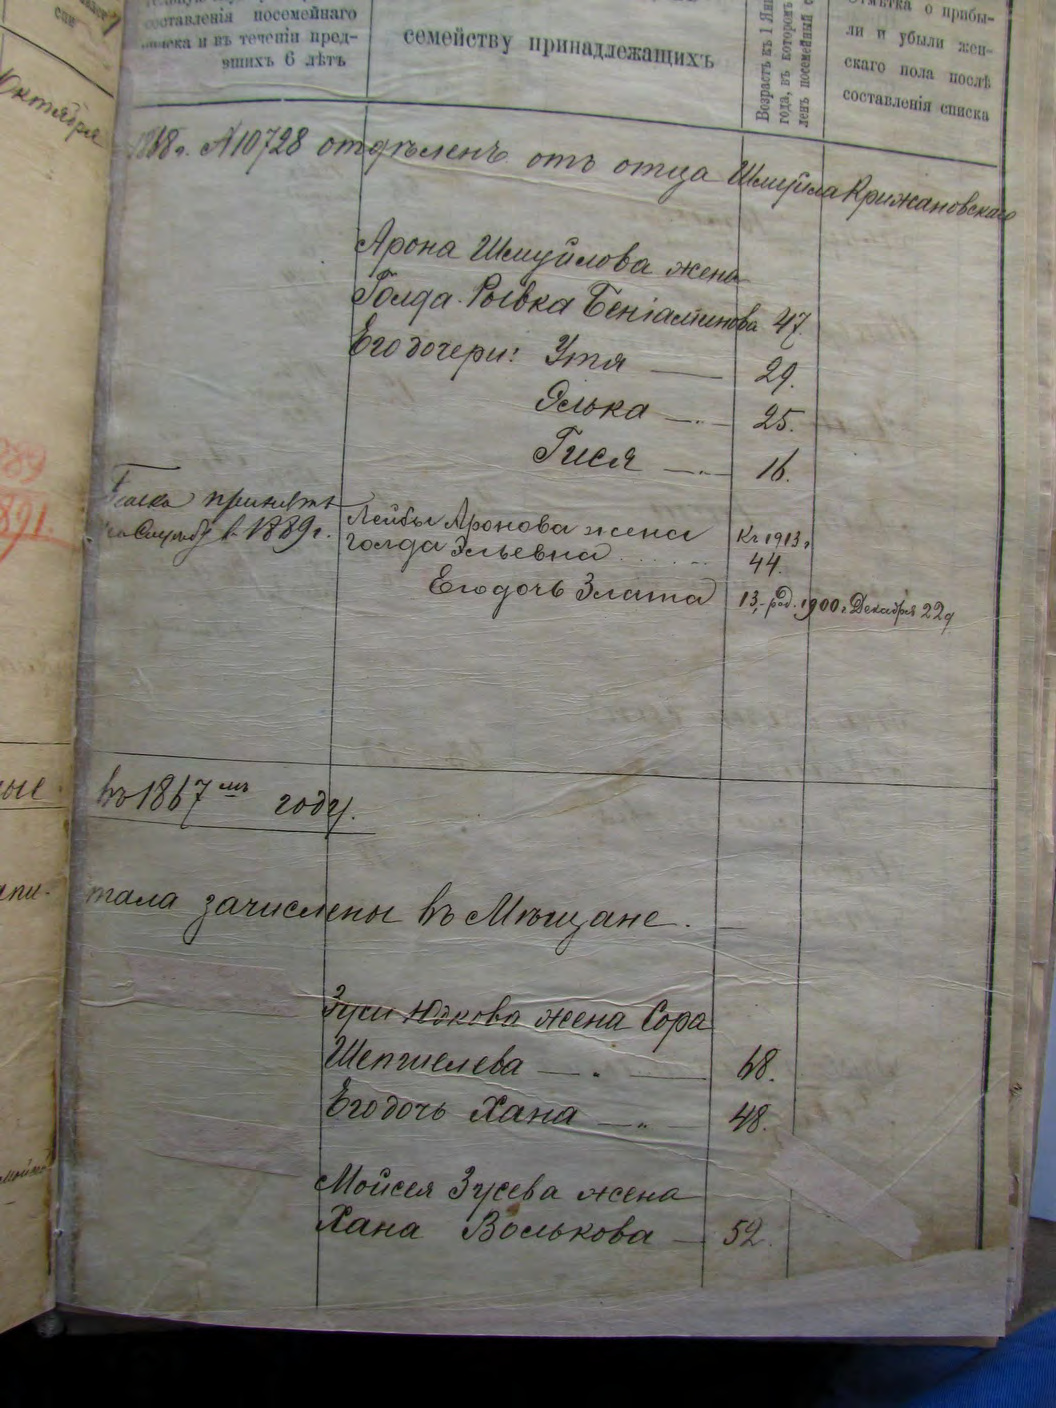 составленія посемейнаго
и въ теченіи пред-
6 лѣтъ
семейству принадлежащихъ
Возрастъ къ 1 Янв
года, въ которомъ
ленъ посемейный
о прибы-
ли и убыли жен-
скаго пола послѣ
составленія списка
Октября
1868 г. № 10728 отдѣленъ отъ отца Шмуйла Крижановскаго
Арона Шмуйлова жена
Голда-Рывка Беніаминова 47.
Его дочери: Утя — 29.
Элька — 25.
Гися — 16.
принятъ
на Службу в 1889 г.
Лейбы Аронова жена Къ 1913 г
Голда Эльевна 44.
Его дочь Злата 13,- род. 1900 г. Декабря 22 д
889
891.
въ 1867 мъ году.
тала зачислены въ Мѣщане. —
Зуси Юдкова жена Сора
Шепшелева — 68.
Его дочь Хана — 48.
Мойсея Зусева жена
Хана Волькова — 52.